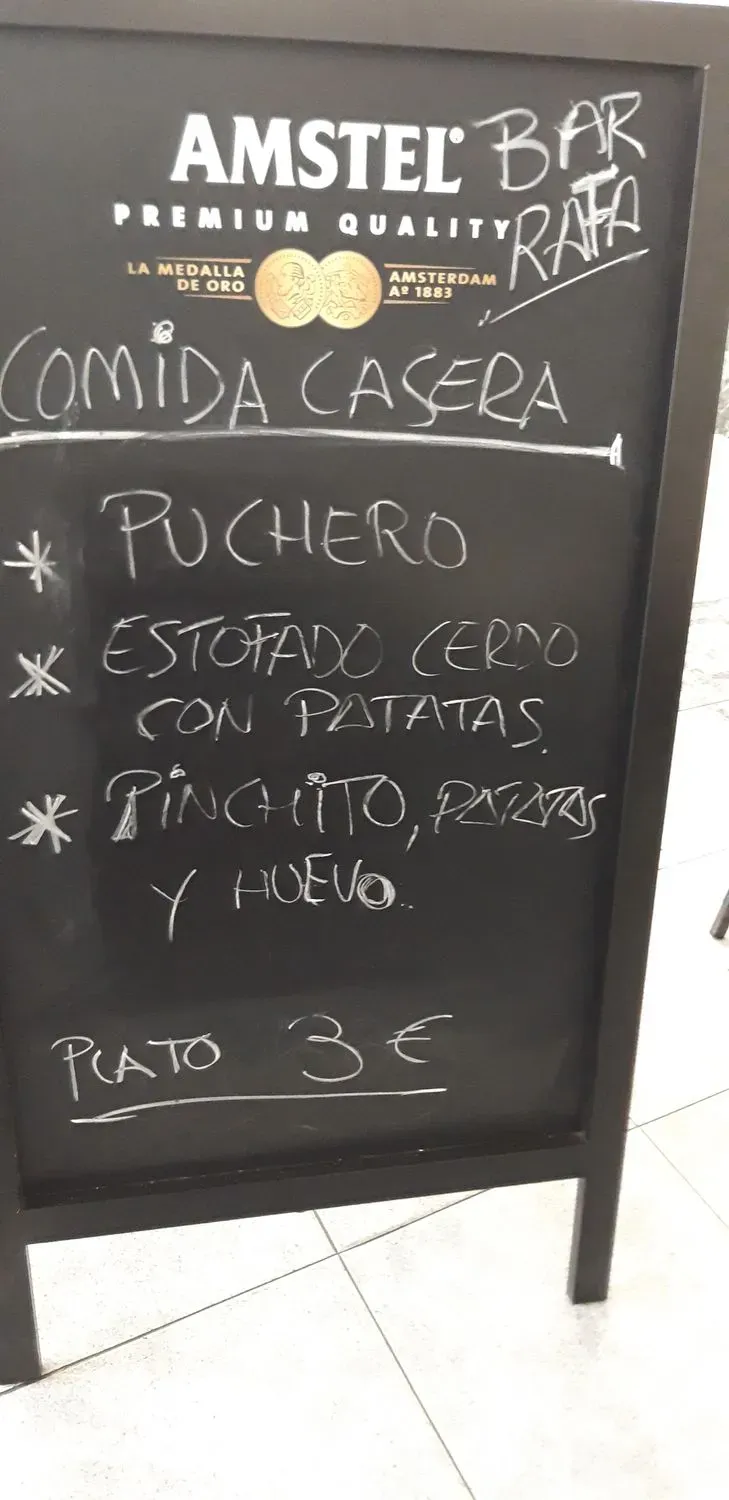 AMSTEL® BAR
PREMIUM QUALITY RAFA
LA MEDALLA DE ORO
AMSTERDAM Aº 1883
COMIDA CASERA
* PUCHERO
* ESTOFADO CERDO
CON PATATAS.
* PINCHITO, PATATAS
Y HUEVO..
PLATO 3 €